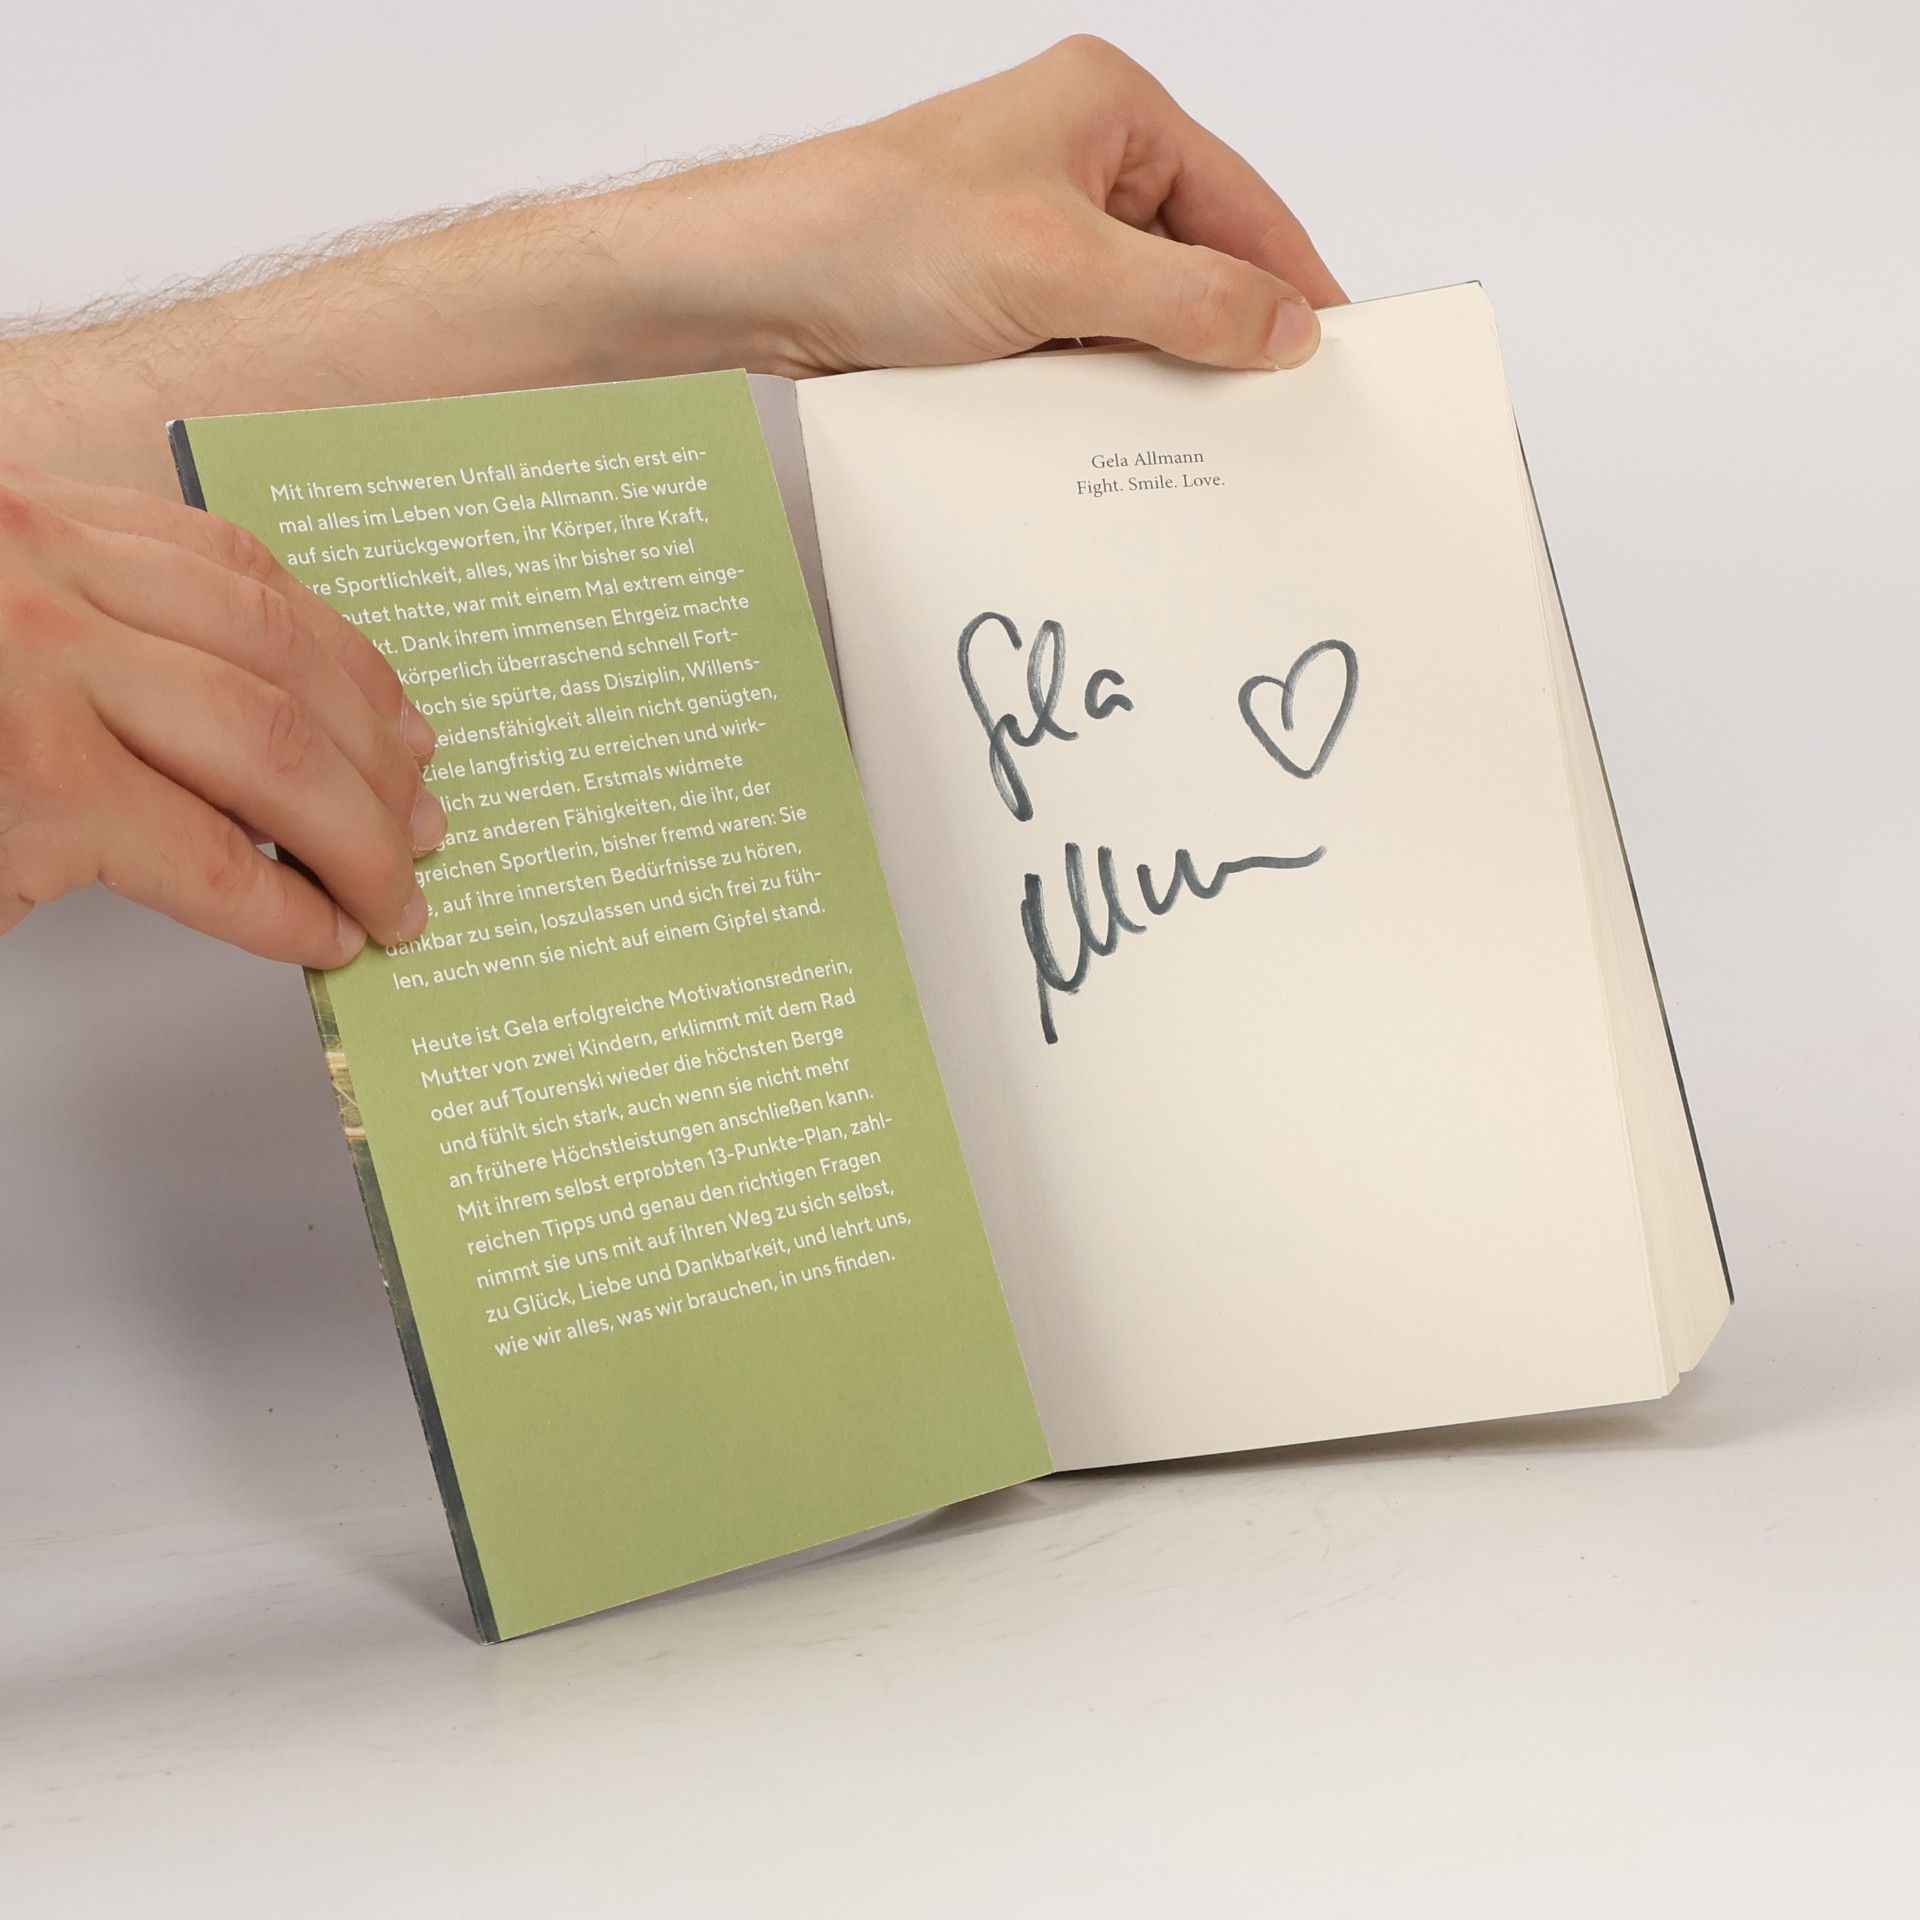 Mit ihrem schweren Unfall änderte sich erst ein-
mal alles im Leben von Gela Allmann. Sie wurde
auf sich zurückgeworfen, ihr Körper, ihre Kraft,
Sportlichkeit, alles, was ihr bisher so viel
hatte, war mit einem Mal extrem einge-
Dank ihrem immensen Ehrgeiz machte
körperlich überraschend schnell Fort-
sie spürte, dass Disziplin, Willens-
allein nicht genügten,
Ziele langfristig zu erreichen und wirk-
lich zu werden. Erstmals widmete
ganz anderen Fähigkeiten, die ihr, der
Sportlerin, bisher fremd waren: Sie
auf ihre innersten Bedürfnisse zu hören,
dankbar zu sein, loszulassen und sich frei zu füh-
len, auch wenn sie nicht auf einem Gipfel stand.
Heute ist Gela erfolgreiche Motivationsrednerin,
Mutter von zwei Kindern, erklimmt mit dem Rad
oder auf Tourenski wieder die höchsten Berge
und fühlt sich stark, auch wenn sie nicht mehr
an frühere Höchstleistungen anschließen kann.
Mit ihrem selbst erprobten 13-Punkte-Plan, zahl-
reichen Tipps und genau den richtigen Fragen
nimmt sie uns mit auf ihren Weg zu sich selbst,
zu Glück, Liebe und Dankbarkeit, und lehrt uns,
wie wir alles, was wir brauchen, in uns finden.
Gela Allmann
Fight. Smile. Love.
Gela
Allmann